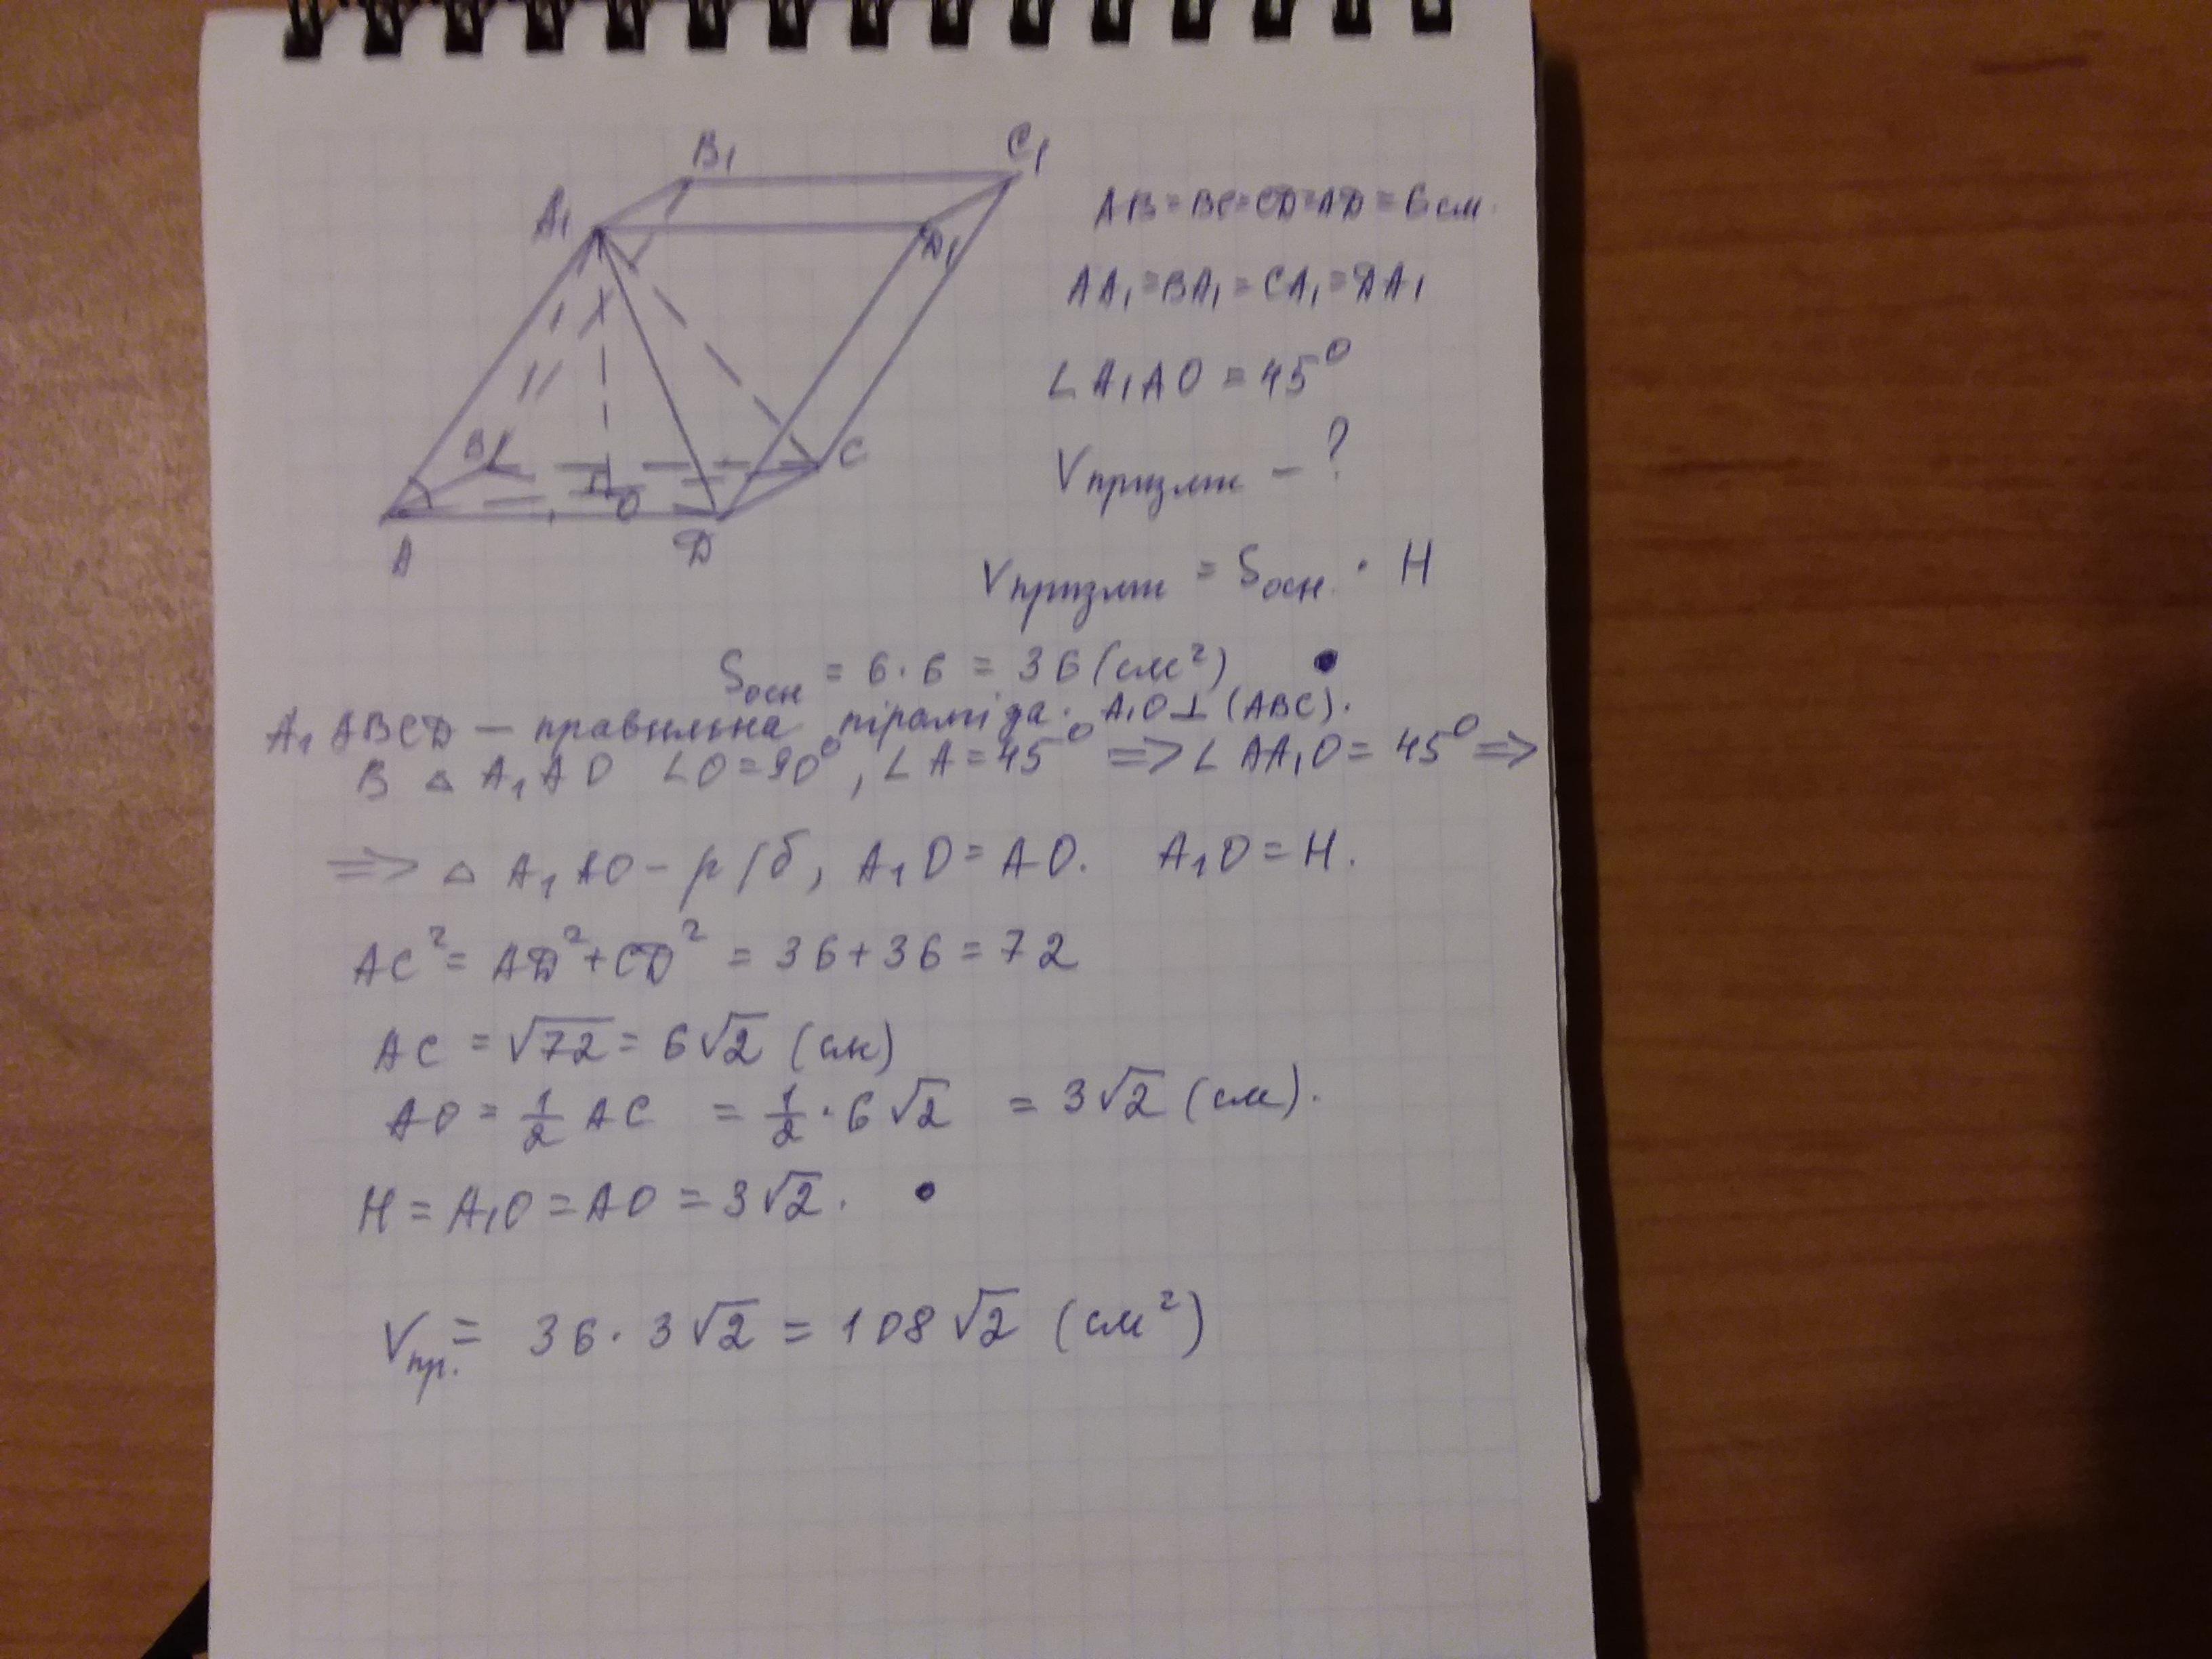 B₁
C₁
A₁
D₁
B
C
O
A
D
AB=BC=CD=AD=6см.
AA₁=BA₁=CA₁=DA₁
∠A₁AO=45°
Vпризми - ?
Vпризми = Sосн. · H
Sосн = 6·6 = 36 (см²)
A₁ABCD — правильна піраміда. A₁O⊥(ABC).
В △ A₁AO ∠O=90°, ∠A=45° => ∠AA₁O=45° =>
=> △ A₁AO - р/б, A₁O=AO. A₁O=H.
AC²= AD²+CD² = 36+36=72
AC = √72 = 6√2 (см)
AO = 1/2 AC = 1/2 · 6√2 = 3√2 (см).
H = A₁O = AO = 3√2.
Vпр. = 36 · 3√2 = 108√2 (см²)